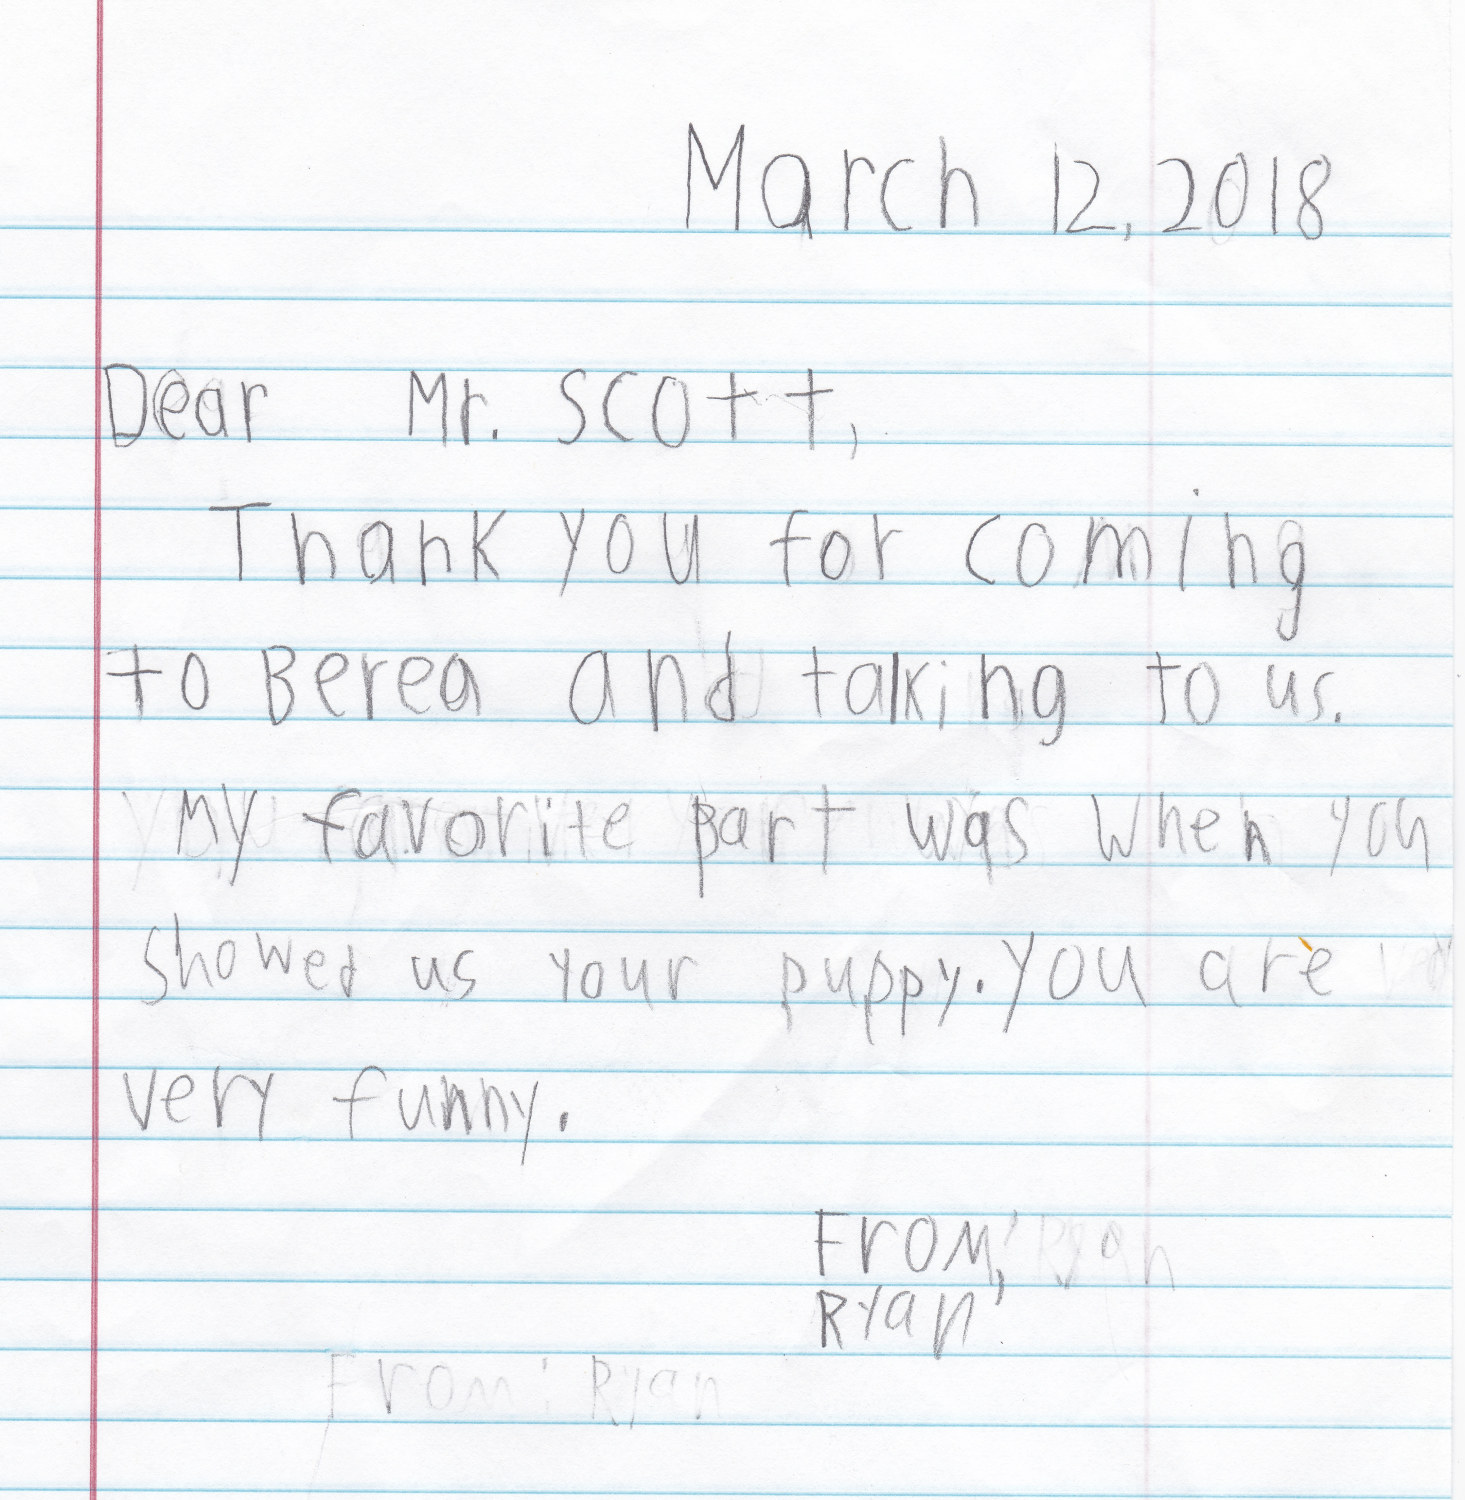 March 12, 2018
Dear Mr. Scott,
Thank you for coming
to Berea and talking to us.
My favorite part was when you
showed us your puppy. You are
very funny.
From, Ryan
Ryan
From: Ryan